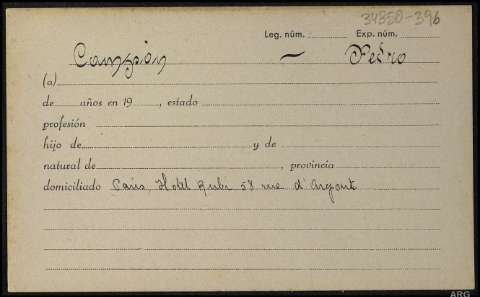 34350-396
Leg. núm. Exp. núm.
Campión — Pedro
(a)
de años en 19 , estado
profesión
hijo de y de
natural de , provincia
domiciliado Paris, Hotel Rubi 58 rue d'Argout
ARG